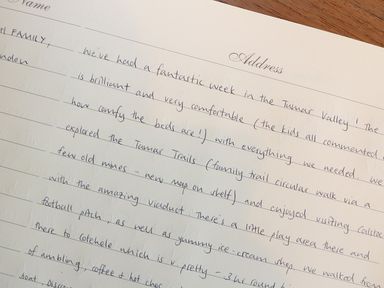 Name
Address
FAMILY,
We've had a fantastic week in the Tamar Valley! The
is brilliant and very comfortable (the kids all commented
how comfy the beds are!) with everything we needed. We
explored the Tamar Trails (family trail circular walk via a
few old mines - new map on shelf) and enjoyed visiting
with the amazing viaduct. There's a little play area there and
football pitch, as well as yummy ice-cream shop. We walked from
there to Cotehele which is v. pretty - 3hr round
of ambling, coffee & hot choc